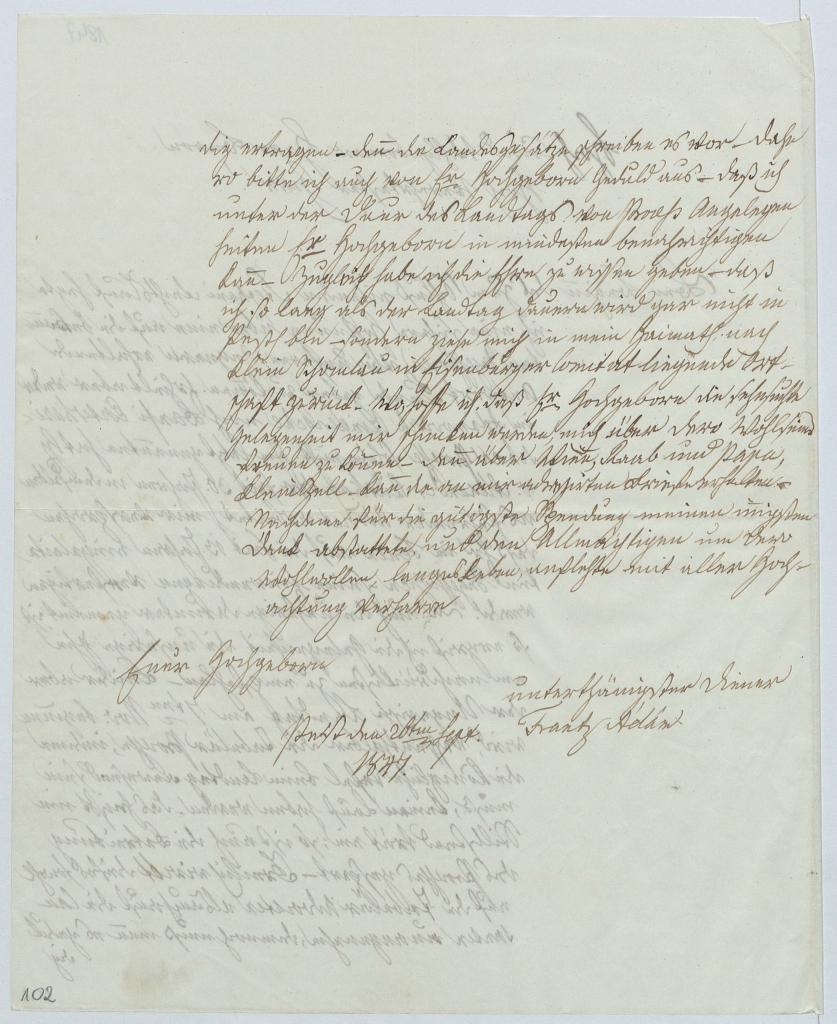 dig ertragen – deñ die Landesgesätze schreiben es vor – dahe
ro bitte ich auch von Er Hochgeborn Geduld aus – daß ich
unter der Dauer des Landtags von Proceß Angelegen
heiten Er Hochgeborn in mindesten benachrichtigen
kan – Zugleich habe ich die Ehre zu wissen geben – daß
ich so lang als der Landtag dauern wird gar nicht in
Pesth bin – sondern ziehe mich in mein Haimath nach
Klein Schomlau in Eisenburger Comitat liegende Ort-
schaft zurück – hoffe ich, daß Er Hochgeborn die
Gelegenheit mir schenken werden, mich über dero Wohlsein
freuen zu könne – deñ über Wien, Raab und Papa,
Kleinzell – kan die an mir adressirten Briefe erhalten –
Nachdeme für die gütigste Spendung meinen innigsten
Dank abstattete, und den Allmächtigen um dero
Wohlwollen, langes Leben, anflehte mit aller Hoch-
achtung verharre
Euer Hochgeborn
unterthänigster Diener
Pest den 20ten Sept.
1847.
102